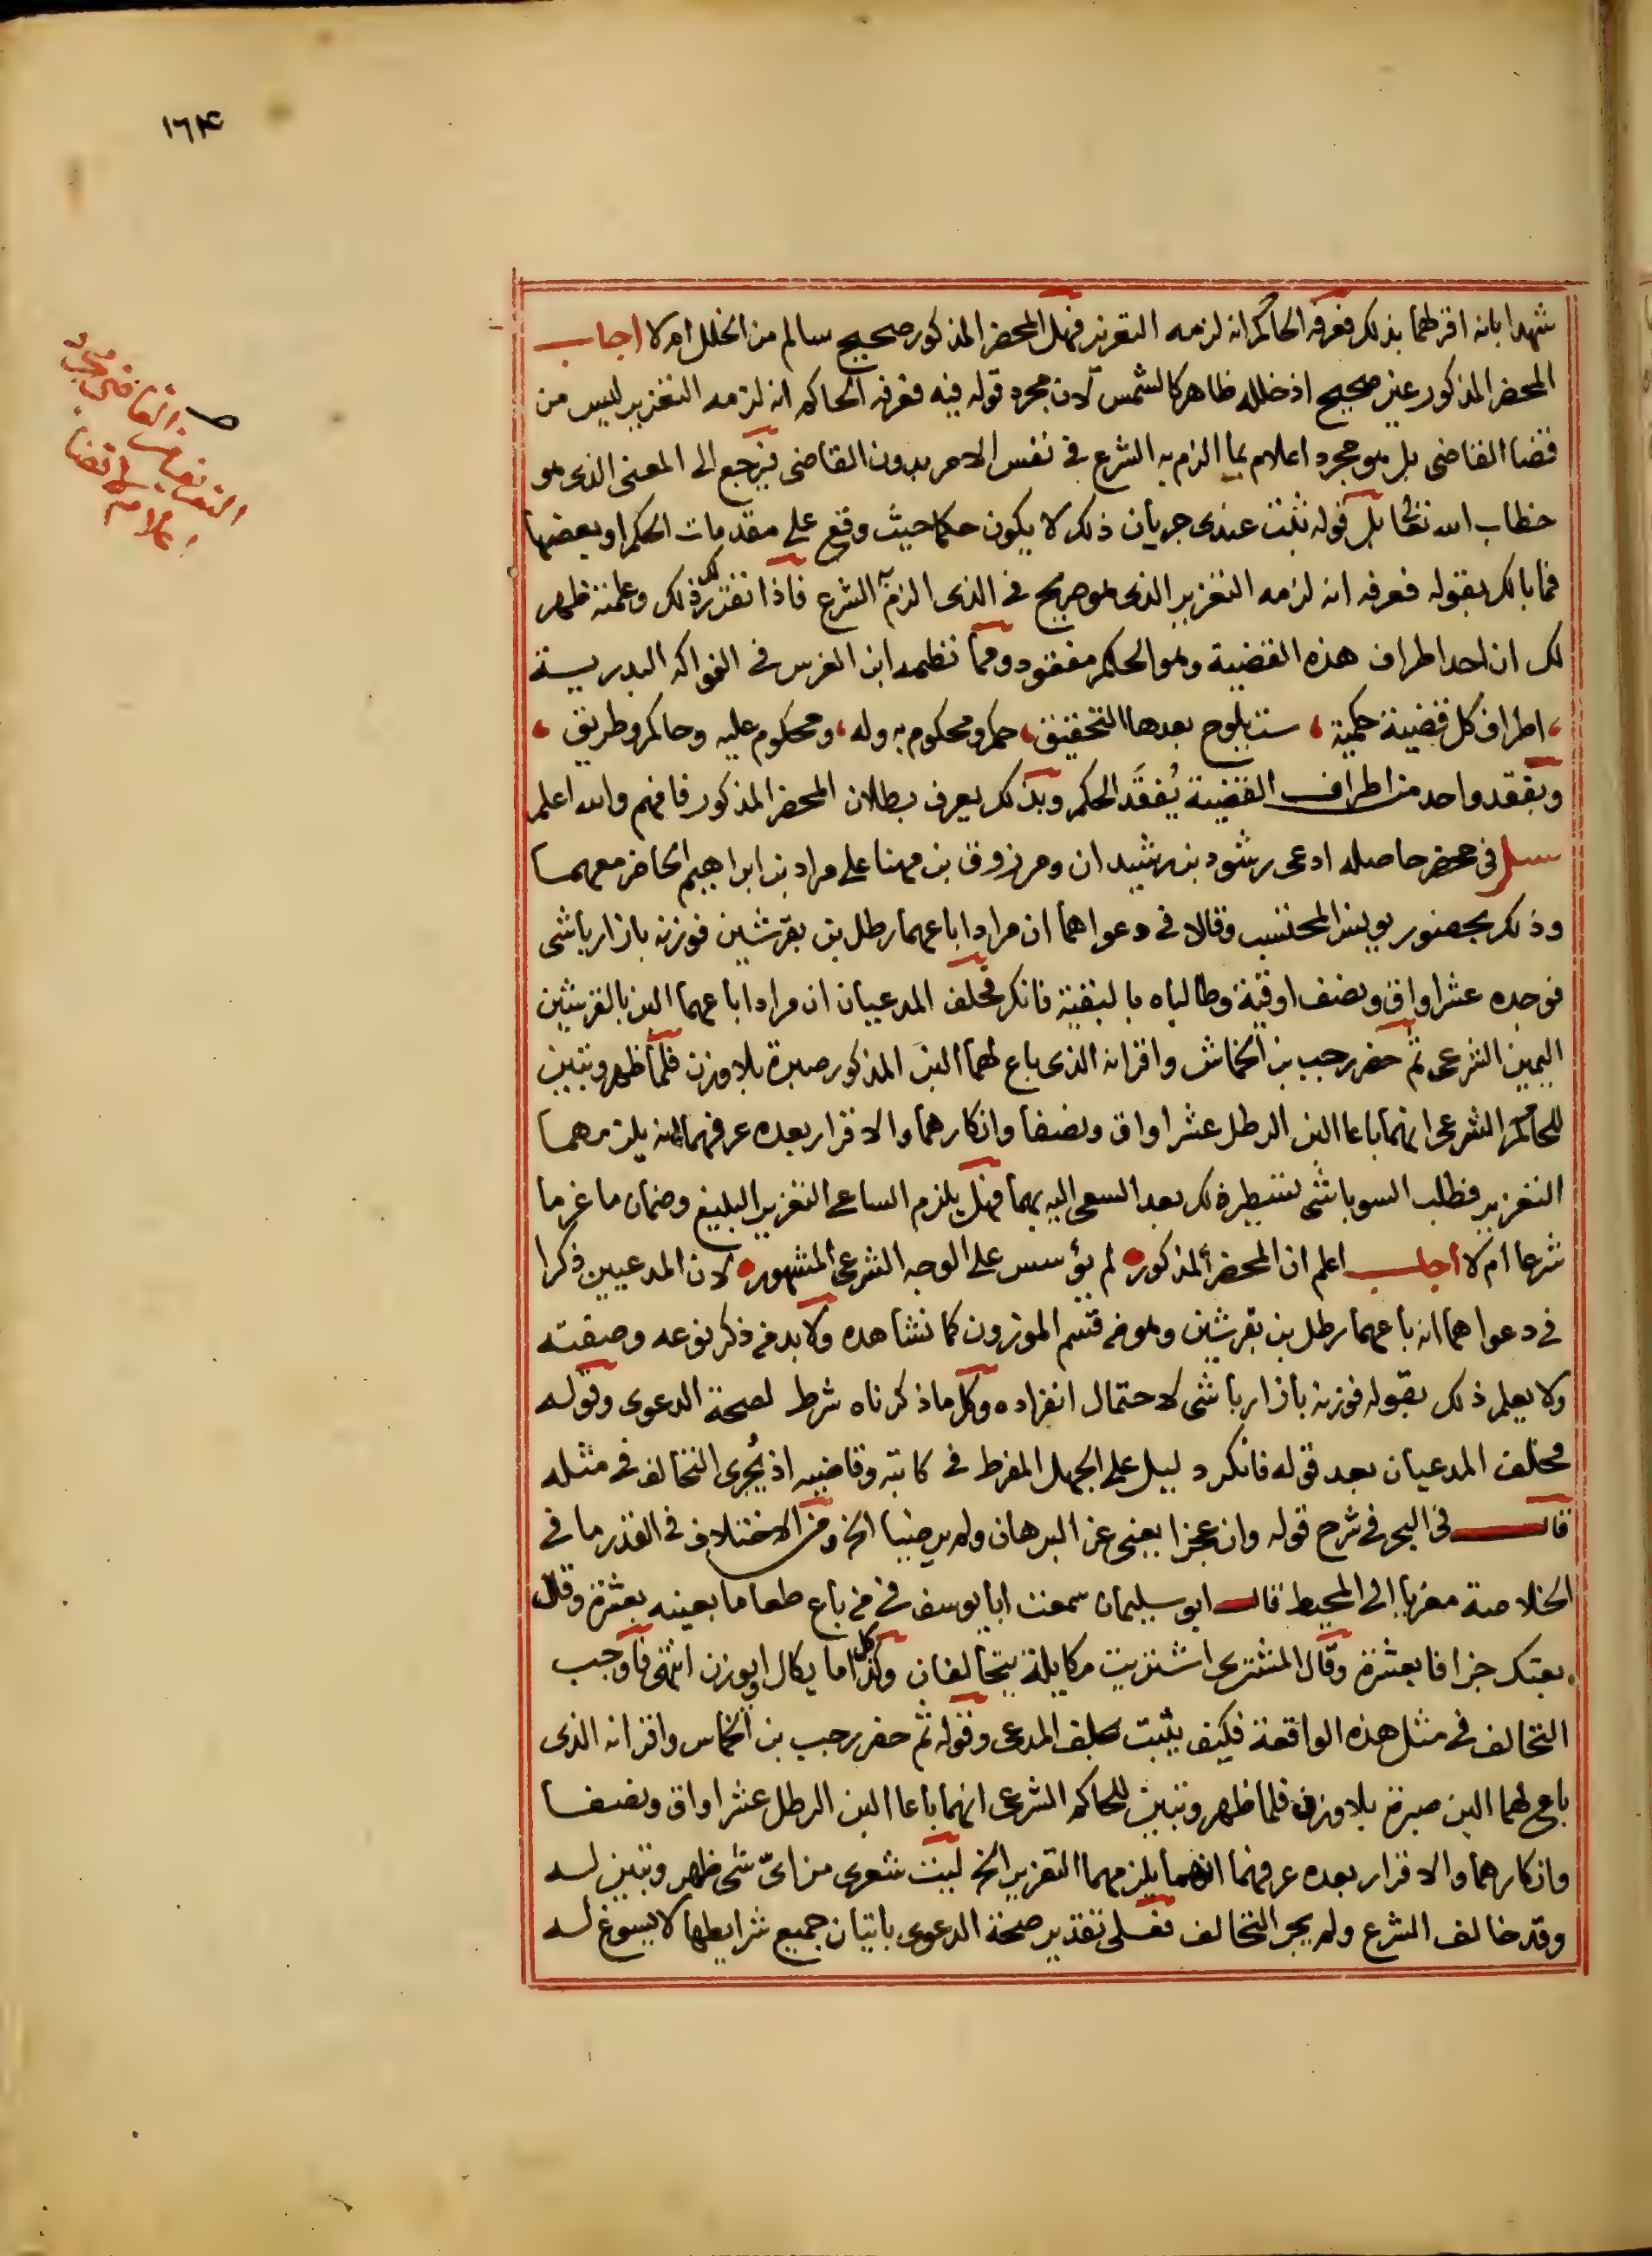 ١٦٣
شهدا بانه اقر لهما بذلك فعرفه الحاكم انه لزمه التعزير فهل المحضر المذكور صحيح سالم من الخلل ام لا اجاب
المحضر المذكور غير صحيح اذ خلله ظاهر كالشمس لان مجرد قوله فيه فعرفه الحاكم انه لزمه التعزير ليس من
قضا القاضى بل هو مجرد اعلام بما الزم به الشرع فى نفس الامر بدون القاضى فيرجع الى المعنى الذى هو
خطاب الله تعالى بل قوله ثبت عندى جريان ذلك لا يكون حكما حيث وقع على مقدمات الحكم او بعضها
فما بالك بقوله فعرفه انه لزمه التعزير الذى هو صريح فى الذى الزم به الشرع فاذا تقرر لك ذلك وعلمته ظهر
لك ان احد اطراف هذه القضية وهو الحكم مفقود ومما نظمه ابن الغرس فى الفواكه البدرية
، اطراف كل قضية حكمية ، ست يلوح بعدها التحقيق ، حكم ومحكوم به وله ، ومحكوم عليه وحاكم وطريق ،
وبفقد واحد من اطراف القضية يُفقَد الحكم وبذلك يعرف بطلان المحضر المذكور فافهم والله اعلم
سئل فى محضر حاصله ادعى رشود بن رشيدان ومرزوق بن مهنا على مراد بن ابراهيم الحاضر معهما
وذلك بحضور يوينس المحتسب وقالا فى دعواهما ان مرادا باعهما رطل بن بقرشين فوزنه بازار باشى
فوجده عشر اواق ونصف اوقية وطالباه بالبقية فانكر فحلف المدعيان ان مرادا باعهما البن بالقرشين
اليمين الشرعى ثم حضر رجب بن الخماش واقر انه الذى باع لهما البن المذكور صبرة بلا وزن فلما ظهر وتبين
للحاكم الشرعى انهما باعا البن الرطل عشر اواق ونصفا وانكارهما والاقرار بعده عرفهما انه يلزمهما
التعزير فطلب السوباشى تسطير ذلك بعد السعى اليه بهما فهل يلزم الساعى التعزير البليغ وضمان ما غرما
شرعا ام لا اجاب اعلم ان المحضر المذكور لم يؤسس على الوجه الشرعى المشهور لان المدعيين ذكرا
فى دعواهما انه باعهما رطل بن بقرشين وهو من قسم الموزون كما نشاهده ولا بد من ذكر نوعه وصفته
ولا يعلم ذلك بقوله فوزنه بازار باشى لاحتمال انفراده وكل ما ذكرناه شرط لصحة الدعوى وقوله
فحلف المدعيان بعد قوله فانكر دليل على الجهل المفرط فى كاتبه وقاضيه اذ يُجرى التحالف فى مثله
قال فى البحر فى شرح قوله وان عجزا يعنى عن البرهان ولم يرضيا الخ ومن الاختلاف فى القدر ما فى
الخلاصة معزيا الى المحيط قال ابو سليمان سمعت ابا يوسف فى من باع طعاما بعينه بعشرة وقال
بعتك جزافا بعشرة وقال المشترى اشتريت مكايلة يتحالفان وكذا كل ما يكال او يوزن انتهى فاوجب
التحالف فى مثل هذه الواقعة فكيف يثبت بحلف المدعى وقوله ثم حضر رجب بن الخماس واقر انه الذى
باع لهما البن صبرة بلا وزن فلما ظهر وتبين للحاكم الشرعى انهما باعا البن الرطل عشر اواق ونصفا
وانكارهما والاقرار بعده عرفهما انهما يلزمهما التعزير الخ ليت شعرى من اىّ شى ظهر وتبين له
وقد خالف الشرع ولم يجر التحالف فعلى تقدير صحة الدعوى باتيان جميع شرايطها لا يسوغ له